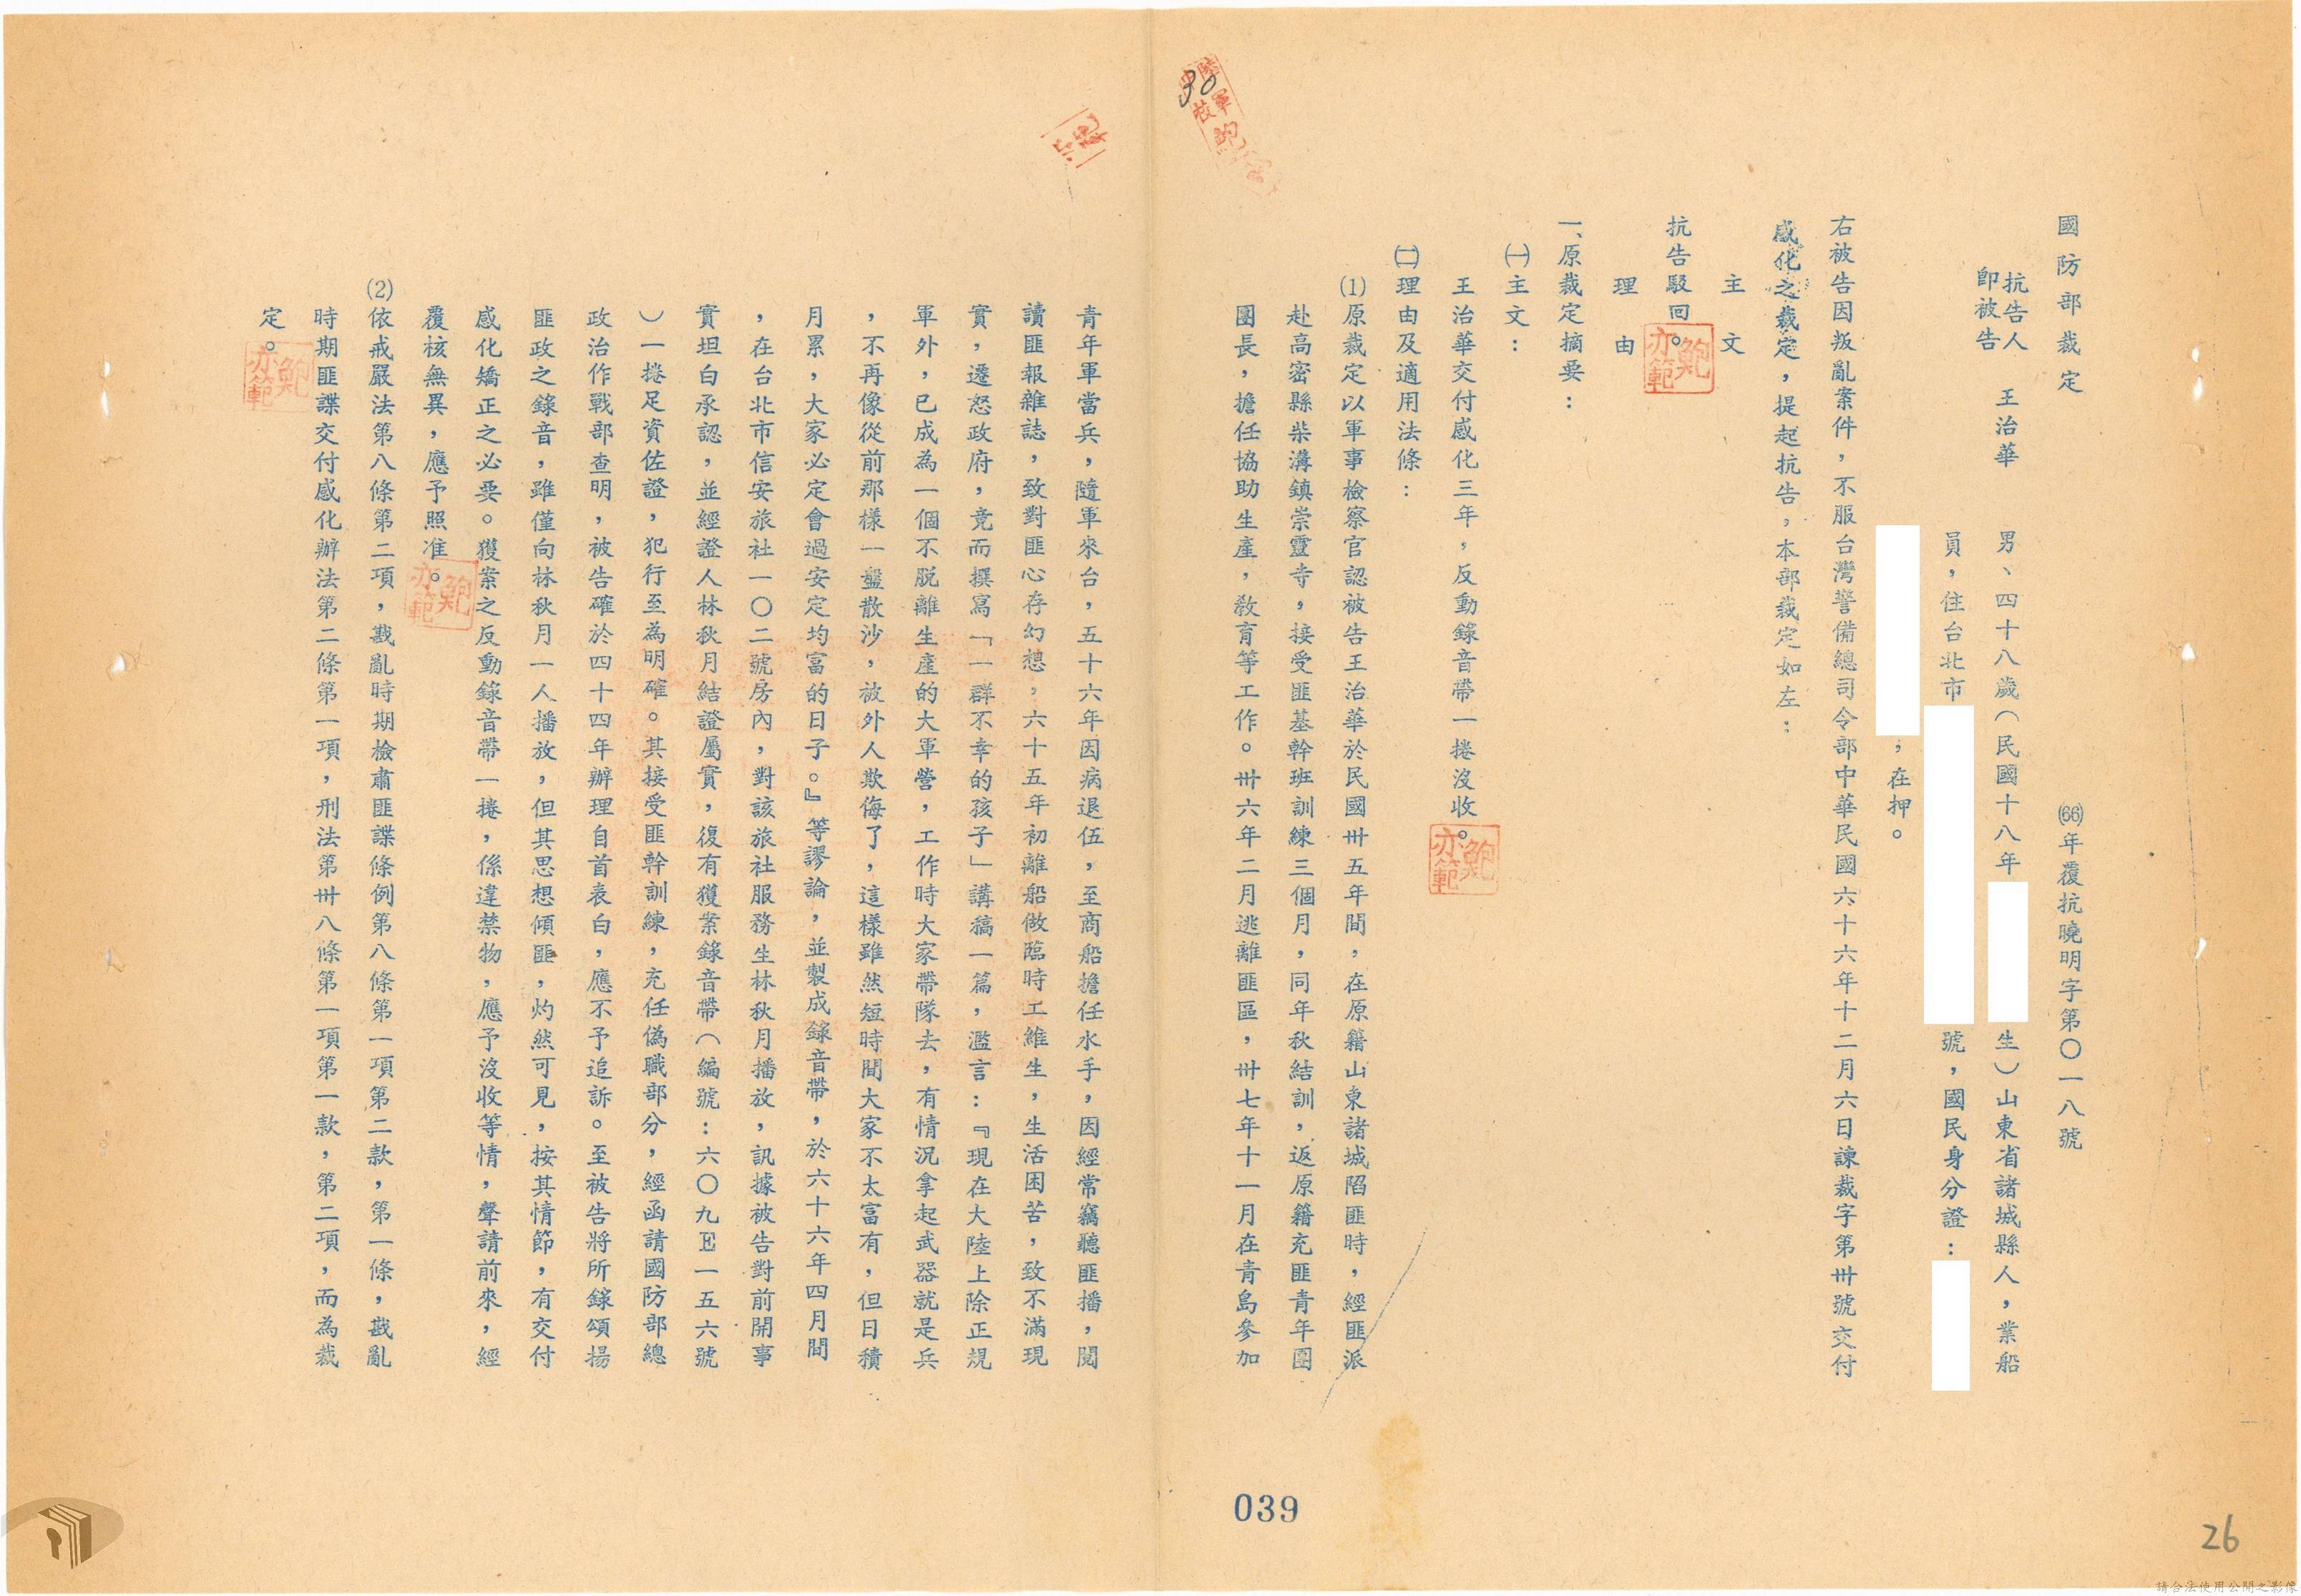 國防部裁定
(66)年覆抗曉明字第〇一八號
抗告人
即被告
王治華
男、四十八歲（民國十八年
生）山東省諸城縣人，業船
員，住台北市
號，國民身分證：
，在押。
右被告因叛亂案件，不服台灣警備總司令部中華民國六十六年十二月六日諫裁字第卅號交付
感化之裁定，提起抗告，本部裁定如左：
主文
抗告駁回。
理由
一、原裁定摘要：
㈠主文：
王治華交付感化三年，反動錄音帶一捲沒收。
㈡理由及適用法條：
(1)原裁定以軍事檢察官認被告王治華於民國卅五年間，在原籍山東諸城陷匪時，經匪派
赴高密縣柴溝鎮崇靈寺，接受匪基幹班訓練三個月，同年秋結訓，返原籍充匪青年團
團長，擔任協助生產，教育等工作。卅六年二月逃離匪區，卅七年十一月在青島參加
青年軍當兵，隨軍來台，五十六年因病退伍，至商船擔任水手，因經常竊聽匪播，閱
讀匪報雜誌，致對匪心存幻想，六十五年初離船做臨時工維生，生活困苦，致不滿現
實，遷怒政府，竟而撰寫「一群不幸的孩子」講稿一篇，濫言：『現在大陸上除正規
軍外，已成為一個不脫離生產的大軍營，工作時大家帶隊去，有情況拿起武器就是兵
，不再像從前那樣一盤散沙，被外人欺侮了，這樣雖然短時間大家不太富有，但日積
月累，大家必定會過安定均富的日子。』等謬論，並製成錄音帶，於六十六年四月間
，在台北市信安旅社一〇二號房內，對該旅社服務生林秋月播放，訊據被告對前開事
實坦白承認，並經證人林秋月結證屬實，復有獲案錄音帶（編號：六〇九E一五六號
）一捲足資佐證，犯行至為明確。其接受匪幹訓練，充任偽職部分，經函請國防部總
政治作戰部查明，被告確於四十四年辦理自首表白，應不予追訴。至被告將所錄頌揚
匪政之錄音，雖僅向林秋月一人播放，但其思想傾匪，灼然可見，按其情節，有交付
感化矯正之必要。獲案之反動錄音帶一捲，係違禁物，應予沒收等情，聲請前來，經
覆核無異，應予照准。
(2)依戒嚴法第八條第二項，戡亂時期檢肅匪諜條例第八條第一項第二款，第一條，戡亂
時期匪諜交付感化辦法第二條第一項，刑法第卅八條第一項第一款，第二項，而為裁
定。
鮑亦範
鮑亦範
鮑亦範
鮑亦範
30
039
26
請合法使用公開之影像